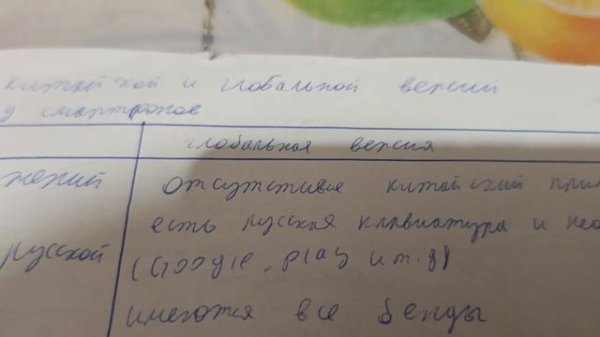 китайской и глобальной версий
смартфонов
глобальная версия
жений отсутствие китайский прил
есть русская клавиатура и нео
русской (Google, play и т.д)
имеются все бенды